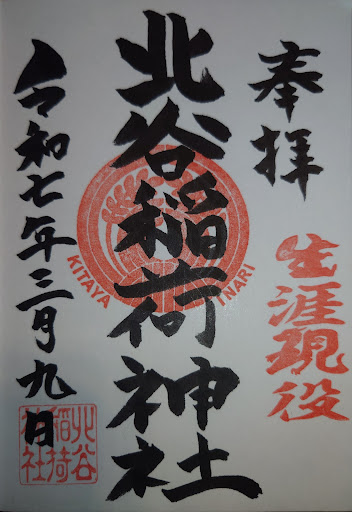 奉拝
生涯現役
北谷稲荷神社
KITAYA INARI
令和七年三月九日
北谷
稲荷
神社